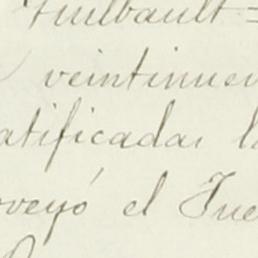 Guilbault =
veintinuev
atificadas l
oveyó el Jue